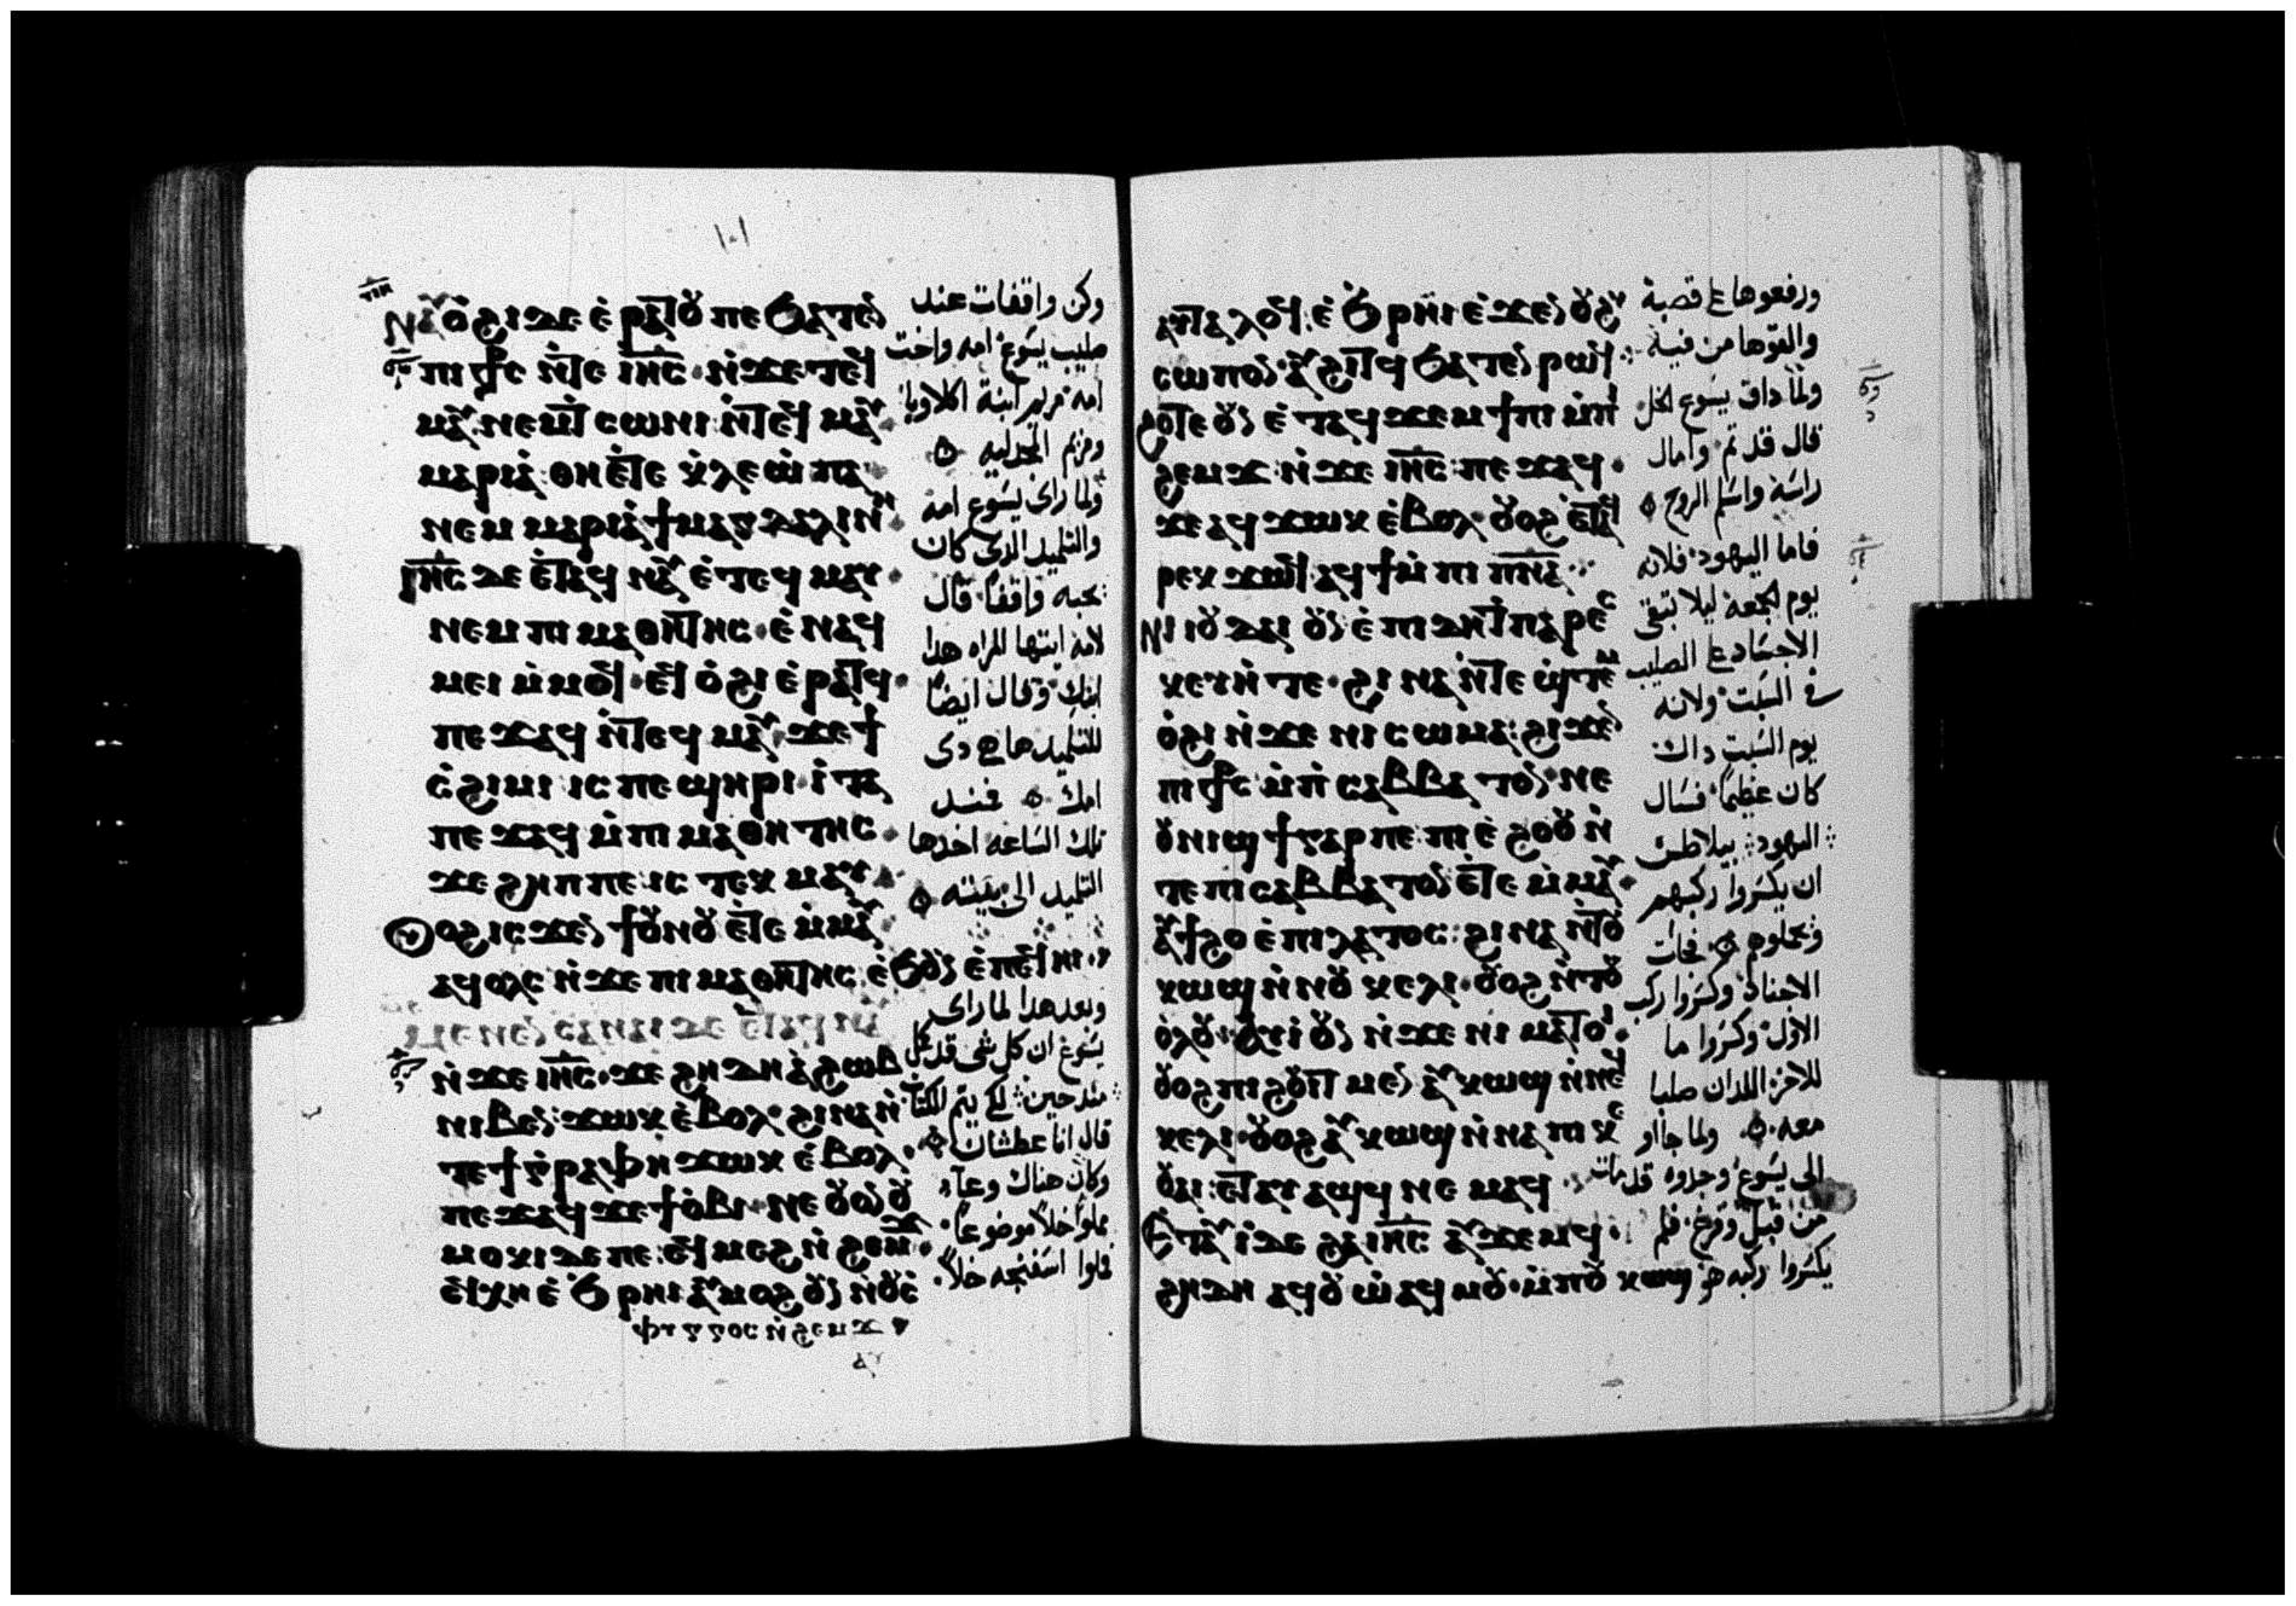 ١٠١
ⲛⲁⲩⲟ̀ϩⲓ ⲇⲉ ⲉ̀ⲣⲁⲧⲟⲩ ⲡⲉ ϧⲁⲧⲉⲛ
ⲡⲓ ⳨ⲥ ⲛ̀ⲧⲉ ⲓⲏ̅ⲥ̅· ⲛ̀ϫⲉ ⲧⲉϥ
ⲙⲁⲩ· ⲛⲉⲙ ⲧ̀ⲥⲱⲛⲓ ⲛ̀ⲧⲉ ⲧⲉϥ ⲙⲁⲩ·
ⲙⲁⲣⲓⲁ̀: ⲑⲏ ⲉ̀ⲧⲉ ⲕ̀ⲗⲉⲱ̀ⲡⲁ·
ⲛⲉⲙ ⲙⲁⲣⲓⲁ̀ ϯⲙⲁⲅⲇⲁⲗⲓⲛⲏ·
ⲓⲏ̅ⲥ̅ ⲇⲉ ⲉ̀ⲧⲁϥ ⲛⲁⲩ ⲉ̀ⲧⲉϥ ⲙⲁⲩ·
ⲛⲉⲙ ⲡⲓ ⲙⲁⲑⲏⲧⲏⲥ· ⲉ̀ⲛⲁϥ
ⲙⲉⲓ ⲙ̀ⲙⲟϥ· ⲉϥ ⲟ̀ϩⲓ ⲉ̀ⲣⲁⲧϥ·
ⲡⲉϫⲁϥ ⲛ̀ⲧⲉϥ ⲙⲁⲩ· ϫⲉ ϯ
ⲥ̀ϩⲓⲙⲓ ⲓⲥ ⲡⲉ ϣⲏⲣⲓ· ⲓ̀ⲧⲁ
ⲡⲉϫⲁϥ ⲙ̀ⲡⲓ ⲙⲁⲑⲏⲧⲏⲥ·
ϫⲉ ϩⲏⲡⲡⲉ ⲓⲥ ⲧⲉⲕ ⲙⲁⲩ·
ⲟⲩⲟϩ ⲓⲥϫⲉⲛ ϯⲟⲩⲛⲟⲩ ⲉ̀ⲧⲉ ⲙ̀ⲙⲁⲩ·
ⲁϥⲟⲗⲥ ⲛ̀ϫⲉ ⲡⲓ ⲙⲁⲑⲏⲧⲏⲥ· ⲉ̀ϧⲟⲩⲛ ⲉ̀ⲡⲉϥⲏⲓ·
ⲛ̀ϫⲉ ⲓⲏ̅ⲥ̅· ϫⲉ ϩⲏⲇⲏ ⲁ̀ ϩⲱⲃ
ⲛⲓⲃⲉⲛ: ϫⲱⲕ ⲉ̀ⲃⲟⲗ· ϩⲓⲛⲁ ⲛ̀
ⲧⲉ ϯⲅ̀ⲣⲁⲫⲏ ϫⲱⲕ ⲉ̀ⲃⲟⲗ·
ⲡⲉϫⲁϥ ϫⲉ ϯⲟ̀ⲃⲓ· ⲛⲉ ⲟⲩⲟⲛ ⲟⲩ
ⲙⲟⲕⲓ ⲇⲉ ⲡⲉ: ⲉϥ ⲙⲉϩ ⲛ̀ϩⲉⲙϫ·
ⲉϥⲭⲏ ⲉ̀ϧ̀ⲣⲏⲓ ⲁⲩⲙⲟϩ ⲟⲩⲛ ⲛ̀ⲟⲩⲥ̀
ⲫⲟⲅⲅⲟⲥ ⲛ̀ϩⲉⲙϫ
وكن واقفات عند
صليب يسوع امه واخت
امه مريم ابنة اكلاوبا
ومريم المجدليه
ولما راى يسوع امه
والتلميد الدى كان
يحبه واقفا قال
لامه ايتها المراه هدا
ابنك وقال ايضا
للتلميد هاهودى
امك فمند
تلك الساعه اخدها
التلميد الى بيته
وبعد هدا لما راى
يسوع ان كل شى قد كمل
مند حين لكى يتم الكتاب
قال انا عطشان
وكان هناك وعآء
مملوا خلا موضوعا
فملوا اسفنجه خلا
ⲥⲱⲡⲟⲛ· ⲁⲩϩⲓⲧϥ ϧⲁⲧⲉⲛ ⲣⲱϥ
ϩⲟⲧⲉ ⲟⲩⲛ ⲉ̀ⲧⲁϥ ϫⲉⲙϯⲡⲓ ⲙ̀ⲡⲓ
ϩⲉⲙϫ ⲛ̀ϫⲉ ⲓⲏ̅ⲥ̅: ⲡⲉϫⲁϥ·
ϫⲉ ⲁϥϫⲱⲕ ⲉ̀ⲃⲟⲗ· ⲟⲩⲟϩ ⲉ̀ⲧⲁϥ
ⲣⲉⲕ ϫⲱϥ ⲁϥϯ ⲙ̀ⲡⲓ ⲡ̅ⲛ̅ⲁ̅
ⲛⲓ ⲓⲟⲩⲇⲁⲓ ⲟⲩⲛ ⲉ̀ⲡⲓⲇⲏ ⲧ̀ⲡⲁⲣⲁⲥ
ⲕⲉⲩⲏ̀ ⲧⲉ· ϩⲓⲛⲁ ⲛ̀ⲧⲉ ϣ̀ⲧⲉⲙ
ⲟ̀ϩⲓ ⲛ̀ϫⲉ ⲛⲓ ⲥⲱⲙⲁ: ϩⲓϫⲉⲛ
ⲡⲓ ⳨ⲥ ⲙ̀ⲡ̀ⲥⲁⲃⲃⲁⲧⲟⲛ· ⲛⲉ
ⲟⲩⲛⲓϣϯ ⲅⲁⲣ ⲡⲉ: ⲡⲓⲉ̀ϩⲟⲟⲩ ⲛ̀
ⲧⲉ ⲡⲓ ⲥⲁⲃⲃⲁⲧⲟⲛ ⲉ̀ⲧⲉ ⲙ̀ⲙⲁⲩ·
ⲁⲩϯϩⲟ ⲉ̀ⲡⲓⲗⲁⲧⲟⲥ: ϩⲓⲛⲁ ⲛ̀ⲧⲟⲩ
ⲕⲱϣ ⲛ̀ⲛⲟⲩ ⲕⲉⲗⲓ· ⲟⲩⲟϩ ⲛ̀ⲧⲟⲩ
ⲟ̀ⲗⲟⲩ· ⲁⲩⲓ̀ ⲟⲩⲛ ⲛ̀ϫⲉ ⲛⲓ ⲙⲁⲧⲟⲓ·
ⲟⲩⲟϩ ⲡⲓϩⲟⲩⲓⲧ ⲙⲉⲛ ⲁⲩⲕⲱϣ ⲛ̀ⲛⲉϥ
ⲕⲉⲗⲓ· ⲟⲩⲟϩ ⲁⲩⲕⲱϣ ⲛ̀ⲛⲁ ⲡⲓⲕⲉ
ⲟⲩⲁⲓ: ⲉ̀ⲧⲁⲩ ⲁϣϥ ⲛⲉⲙⲁϥ·
ⲉ̀ⲧⲁⲩⲓ̀ ⲇⲉ ϩⲁ ⲓⲏ̅ⲥ̅ ⲁⲩϫⲉⲙϥ·
ϩⲏⲇⲏ ⲁϥⲟⲩⲱ̀ ⲁϥⲙⲟⲩ· ⲙ̀ⲡⲟⲩ ⲕⲱϣ
ورفعوها ع قصبة
ولما داق يسوع الخل
قال قد تم وامال
راسه واسلم الروح
فاما اليهود فلانه
يوم الجمعة ليلا تبقى
الاجساد ع الصليب
فى السبت ولانه
يوم السبت داك
كان عظيما فسال
اليهود بيلاطس
ان يكسروا ركبهم
الاجناد وكسروا ركب
الاول وكسروا ما
للاخر اللدان صلبا
معه ولما جااو
الى يسوع وجدوه قد مات
يكسروا ركبه